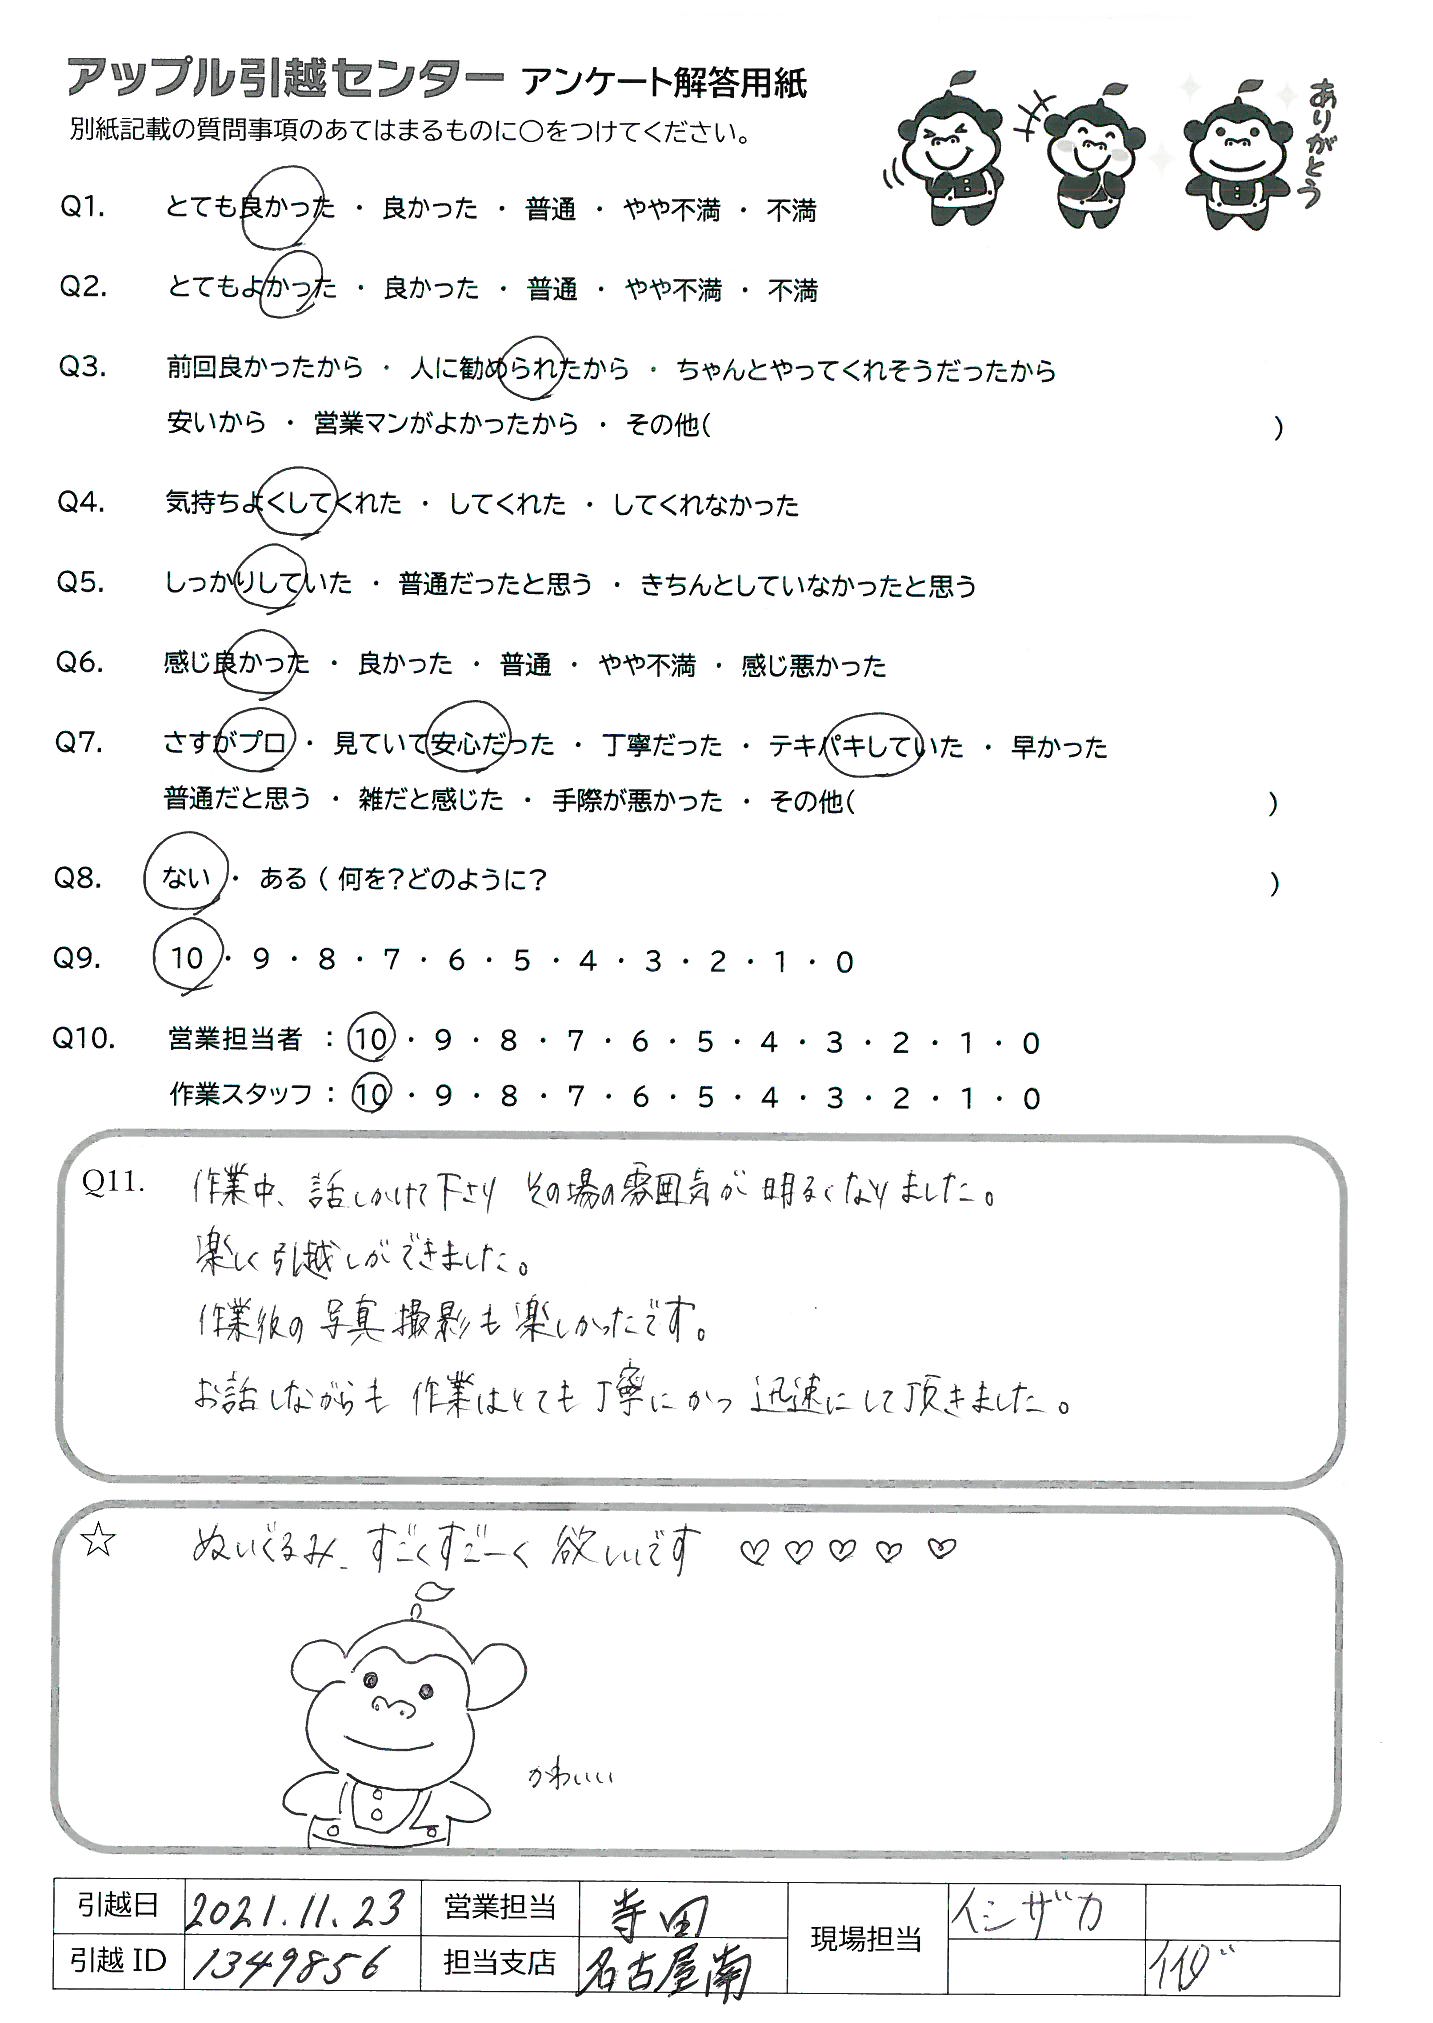 アップル引越センター アンケート解答用紙
別紙記載の質問事項のあてはまるものに○をつけてください。
ありがとう
Q1. とても良かった ・ 良かった ・ 普通 ・ やや不満 ・ 不満
Q2. とてもよかった ・ 良かった ・ 普通 ・ やや不満 ・ 不満
Q3. 前回良かったから ・ 人に勧められたから ・ ちゃんとやってくれそうだったから
安いから ・ 営業マンがよかったから ・ その他( )
Q4. 気持ちよくしてくれた ・ してくれた ・ してくれなかった
Q5. しっかりしていた ・ 普通だったと思う ・ きちんとしていなかったと思う
Q6. 感じ良かった ・ 良かった ・ 普通 ・ やや不満 ・ 感じ悪かった
Q7. さすがプロ ・ 見ていて安心だった ・ 丁寧だった ・ テキパキしていた ・ 早かった
普通だと思う ・ 雑だと感じた ・ 手際が悪かった ・ その他( )
Q8. ない ・ ある ( 何を?どのように? )
Q9. 10 ・ 9 ・ 8 ・ 7 ・ 6 ・ 5 ・ 4 ・ 3 ・ 2 ・ 1 ・ 0
Q10. 営業担当者 : 10 ・ 9 ・ 8 ・ 7 ・ 6 ・ 5 ・ 4 ・ 3 ・ 2 ・ 1 ・ 0
作業スタッフ : 10 ・ 9 ・ 8 ・ 7 ・ 6 ・ 5 ・ 4 ・ 3 ・ 2 ・ 1 ・ 0
Q11. 作業中、話しかけて下さり その場の雰囲気が明るくなりました。
楽しく引越しができました。
作業後の写真撮影も楽しかったです。
お話しながらも 作業はとても丁寧にかつ 迅速にして頂きました。
☆ ぬいぐるみ、すごくすごーく欲しいです ♡ ♡ ♡ ♡ ♡
かわいい
引越日 2021.11.23 営業担当 寺田 現場担当 イシザカ
引越ID 1349856 担当支店 名古屋南